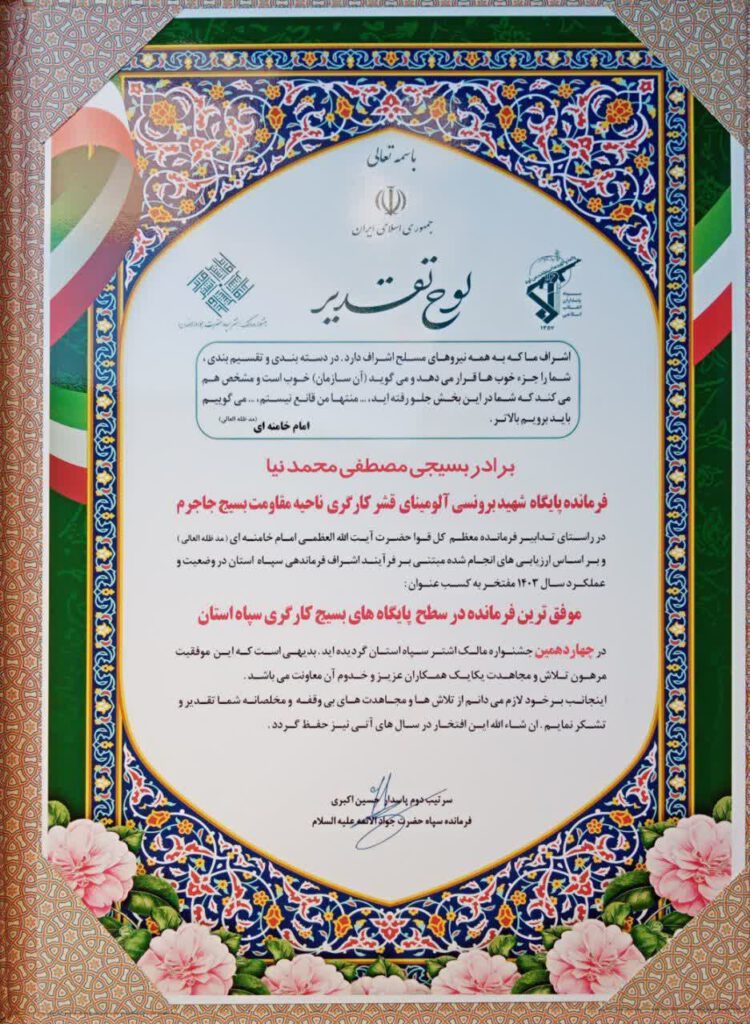 باسمه تعالی
جمهوری اسلامی ایران
لوح تقدیر
سپاه
پاسداران
انقلاب
اسلامی
۱۳۵۷
اشراف ما که به همه نیروهای مسلح اشراف دارد. در دسته بندی و تقسیم بندی،
شما را جزء خوب ها قرار می دهد و می گوید (آن سازمان) خوب است و مشخص هم
می کند که شما در این بخش جلو رفته اید، ... منتها من قانع نیستم، ... می گوییم
باید برویم بالاتر.
امام خامنه ای (مد ظله العالی)
برادر بسیجی مصطفی محمدنیا
فرمانده پایگاه شهید برونسی آلومینای قشر کارگری ناحیه مقاومت بسیج جاجرم
در راستای تدابیر فرمانده معظم کل قوا حضرت آیت الله العظمی امام خامنه ای (مد ظله العالی)
و بر اساس ارزیابی های انجام شده مبتنی بر فرآیند اشراف فرماندهی سپاه استان در وضعیت و
عملکرد سال ۱۴۰۳ مفتخر به کسب عنوان:
موفق ترین فرمانده در سطح پایگاه های بسیج کارگری سپاه استان
در چهاردهمین جشنواره مالک اشتر سپاه استان گردیده اید. بدیهی است که این موفقیت
مرهون تلاش و مجاهدت یکایک همکاران عزیز و خدوم آن معاونت می باشد.
اینجانب بر خود لازم می دانم از تلاش ها و مجاهدت های بی وقفه و مخلصانه شما تقدیر و
تشکر نمایم. ان شاء الله این افتخار در سال های آتی نیز حفظ گردد.
سرتیپ دوم پاسدار حسین اکبری
فرمانده سپاه حضرت جواد الائمه علیه السلام